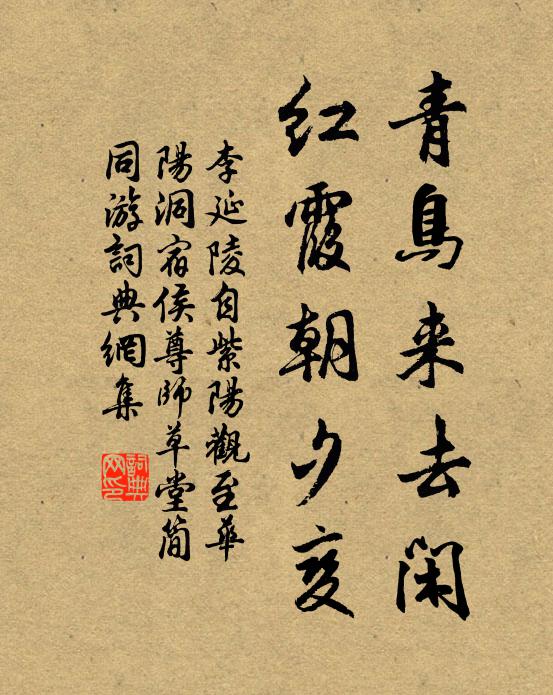 青鳥来去閑
紅霞朝夕変
李延陵自紫陽觀至華
陽洞宿侯尊師草堂簡
同游詞典網集
詞典
网印